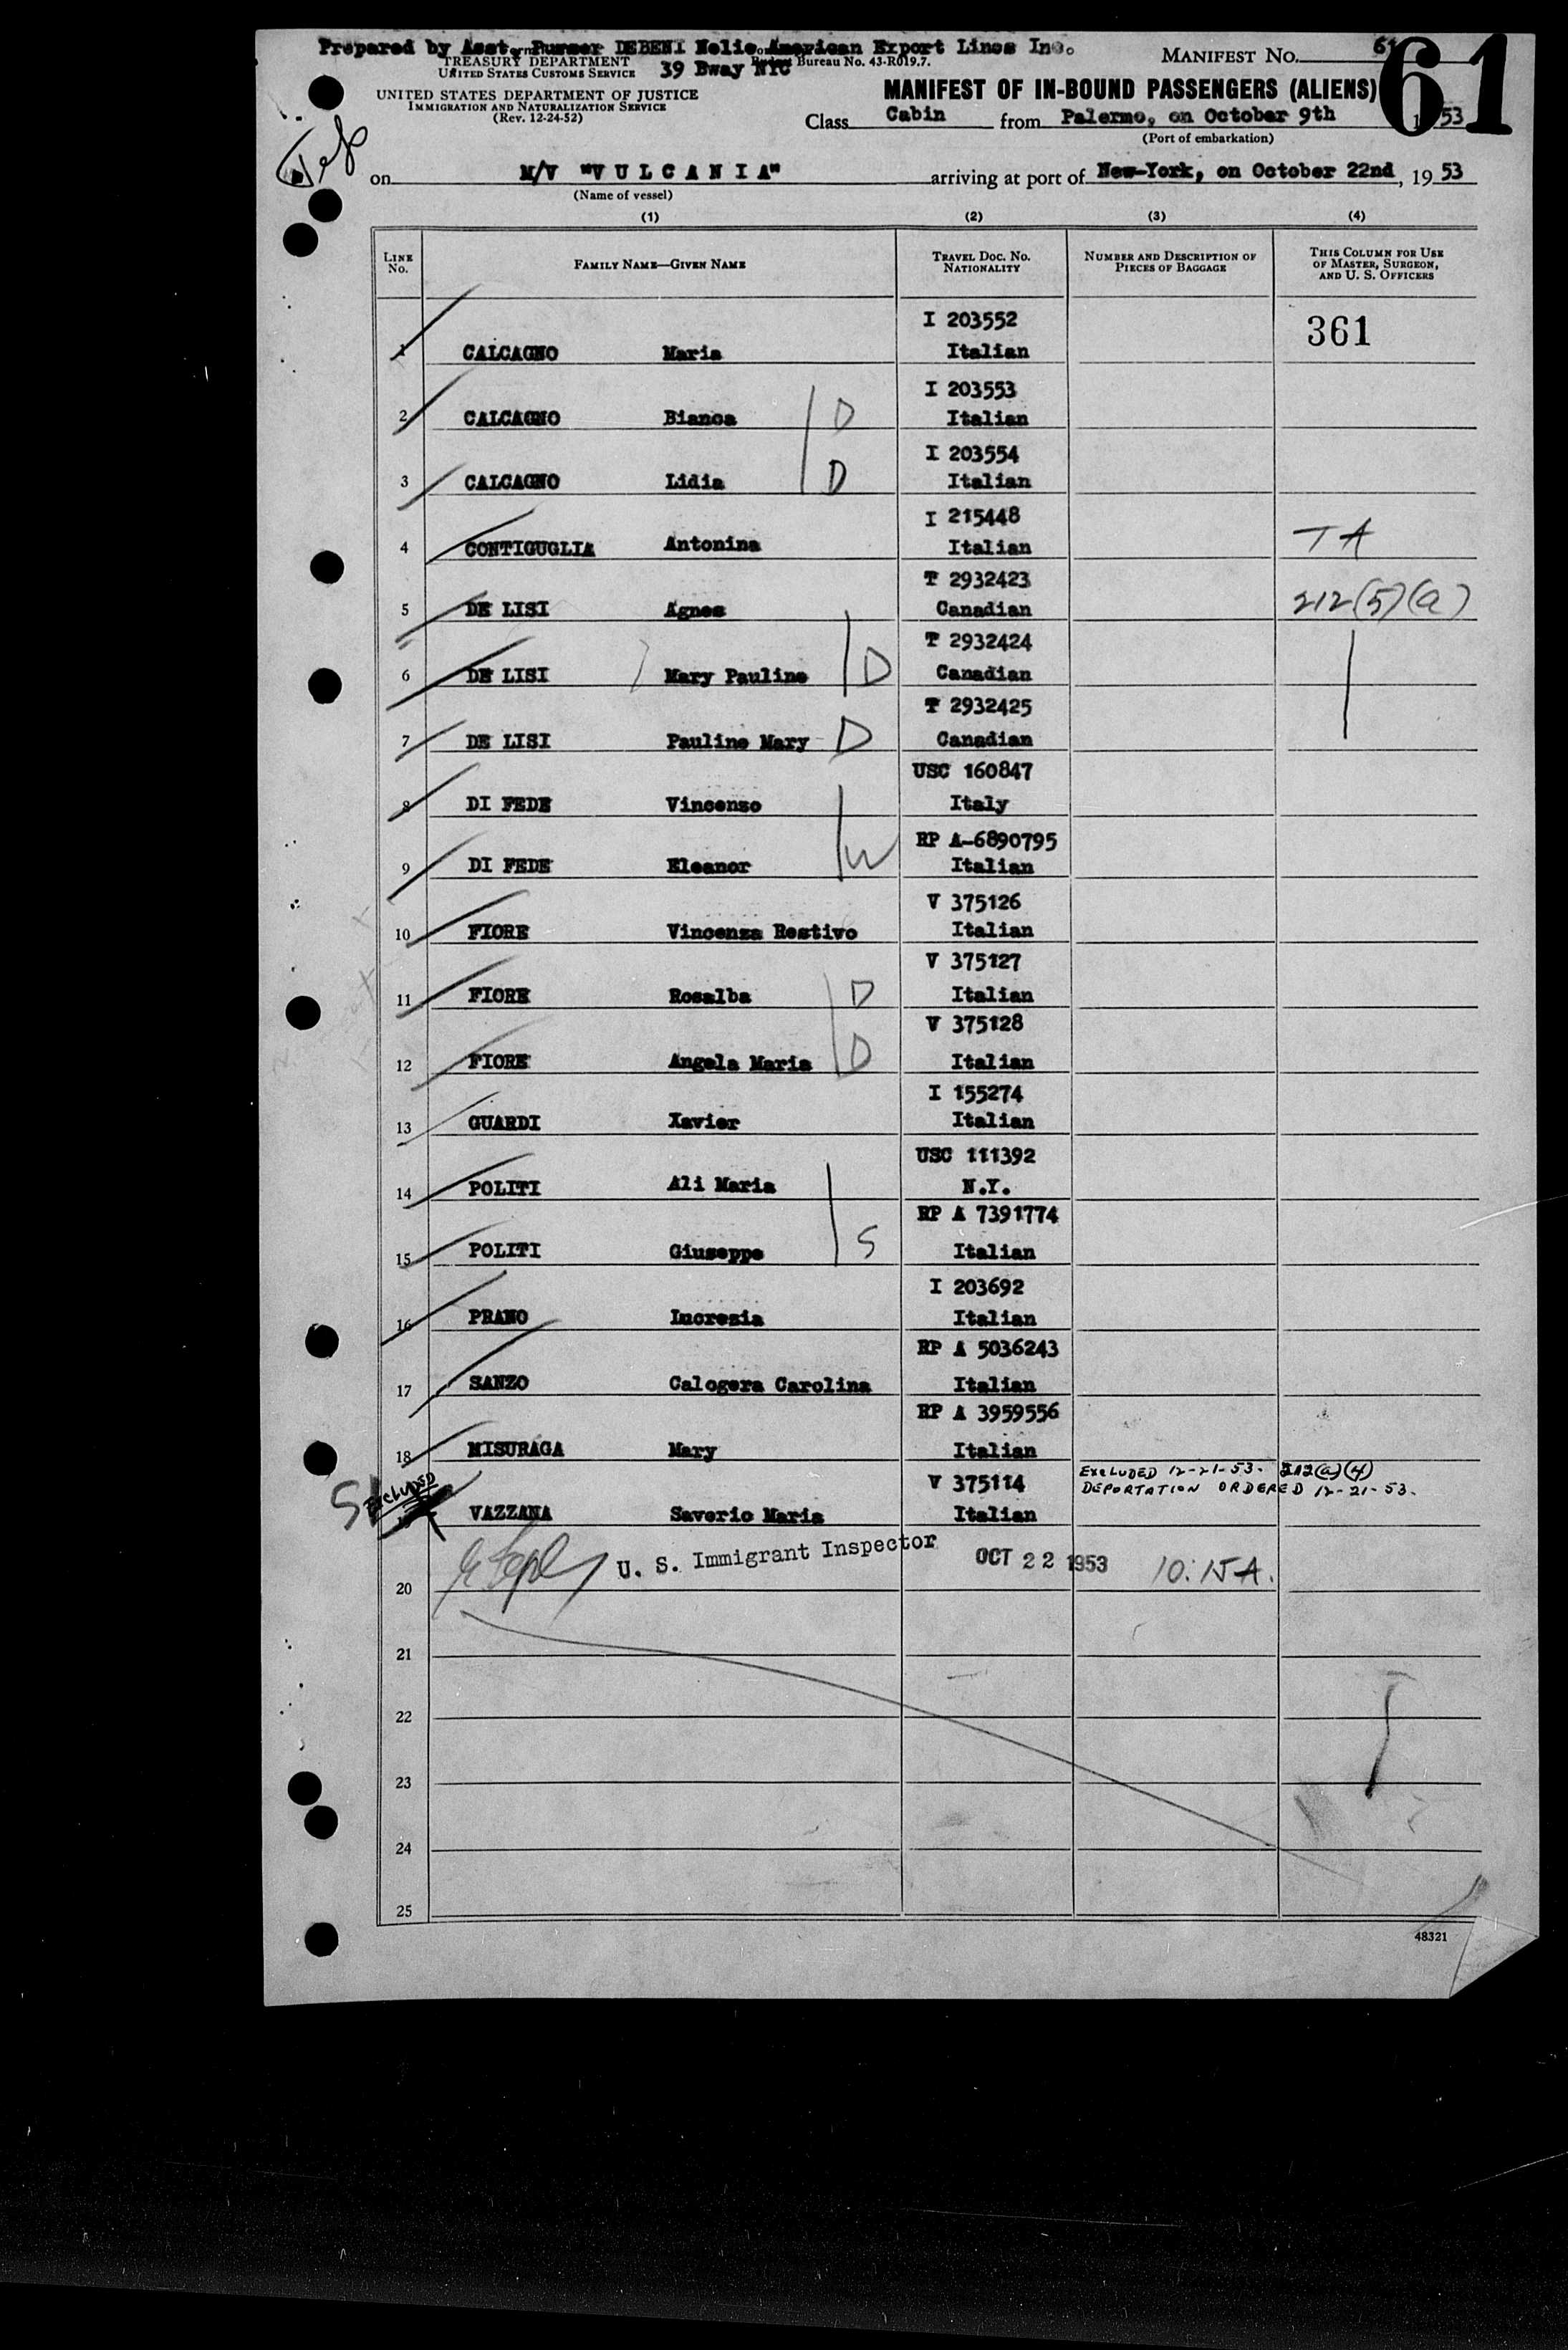 Prepared by Asst. Purser DEBENI Nelio. American Export Lines Inc.
TREASURY DEPARTMENT
UNITED STATES CUSTOMS SERVICE
39 Bway NYC
Bureau No. 43-R019.7.
MANIFEST NO. 61
61
UNITED STATES DEPARTMENT OF JUSTICE
IMMIGRATION AND NATURALIZATION SERVICE
(Rev. 12-24-52)
MANIFEST OF IN-BOUND PASSENGERS (ALIENS)
Class Cabin from Palermo, on October 9th 1953
(Port of embarkation)
on M/V "VULCANIA" arriving at port of New-York, on October 22nd, 1953
(Name of vessel)
(1) (2) (3) (4)
LINE NO. FAMILY NAME—GIVEN NAME TRAVEL DOC. NO. NATIONALITY NUMBER AND DESCRIPTION OF PIECES OF BAGGAGE THIS COLUMN FOR USE OF MASTER, SURGEON, AND U. S. OFFICERS
I 203552 361
1 CALCAGNO Maria Italian
I 203553
2 CALCAGNO Bianca D Italian
I 203554
3 CALCAGNO Lidia D Italian
I 215448
4 CONTIGUGLIA Antonina Italian TA
T 2932423
5 DE LISI Agnes Canadian 212(5)(a)
T 2932424
6 DE LISI Mary Pauline D Canadian
T 2932425
7 DE LISI Pauline Mary D Canadian
USC 160847
8 DI FEDE Vincenzo Italy
RP A-6890795
9 DI FEDE Eleanor W Italian
V 375126
10 FIORE Vincenza Restivo Italian
V 375127
11 FIORE Rosalba D Italian
V 375128
12 FIORE Angela Maria D Italian
I 155274
13 GUARDI Xavier Italian
USC 111392
14 POLITI Ali Maria N.Y.
RP A 7391774
15 POLITI Giuseppe S Italian
I 203692
16 PRANO Lucrezia Italian
RP A 5036243
17 SANZO Calogera Carolina Italian
RP A 3959556
18 MISURAGA Mary Italian
V 375114 EXCLUDED 12-21-53. 212(a)(4)
EXCLUDED DEPORTATION ORDERED 12-21-53.
VAZZANA Saverio Maria Italian
U. S. Immigrant Inspector OCT 22 1953 10:15 A.
20
21
22
23
24
25
48321